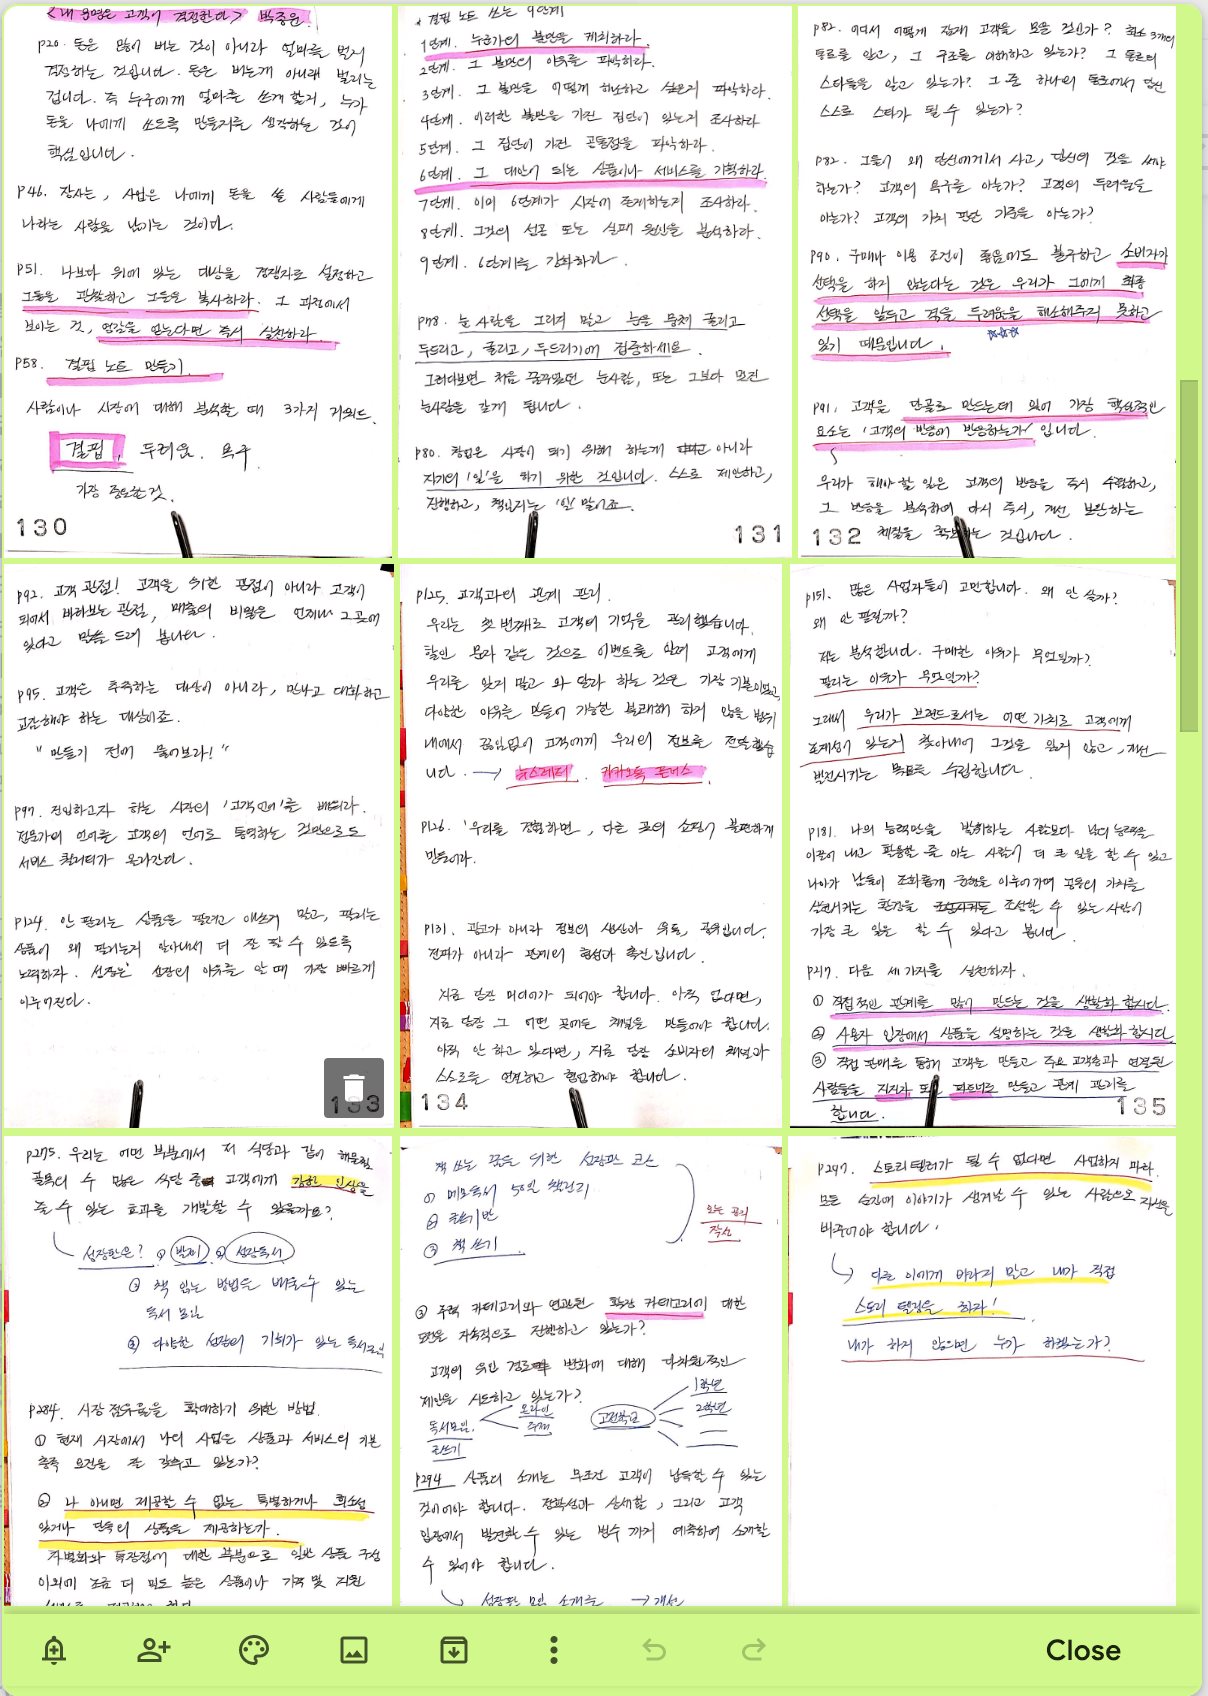 <내 운명은 고객이 결정한다> 박종윤
p20. 돈은 많이 버는 것이 아니라 얼마를 벌지
결정하는 것입니다. 돈은 버는게 아니라 벌리는
겁니다. 즉 누구에게 얼마를 쓰게 할지, 누가
돈을 나에게 쓰도록 만들지를 생각하는 것이
핵심입니다.
p46. 장사는, 사업은 나에게 돈을 쓸 사람들에게
나라는 사람을 남기는 것이다.
p51. 나보다 위에 있는 대상을 경쟁자로 설정하고
그들을 관찰하고 그들을 복사하라. 그 과정에서
보이는 것, 영감을 얻는다면 즉시 실천하라.
p58. 결핍 노트 만들기.
사람이나 시장에 대해 분석할 때 3가지 키워드.
결핍, 두려움, 욕구
가장 중요한 것.
130
* 결핍 노트 쓰는 9단계
1단계. 누군가의 불만을 캐치하라.
2단계. 그 불만의 이유를 파악하라.
3단계. 그 불만을 어떻게 해소하고 싶은지 파악하라.
4단계. 이러한 불만을 가진 집단이 있는지 조사하라
5단계. 그 집단이 가진 공통점을 파악하라.
6단계. 그 대안이 되는 상품이나 서비스를 기획하라.
7단계. 이미 6단계가 시장에 존재하는지 조사하라.
8단계. 그것의 성공 또는 실패 원인을 분석하라.
9단계. 6단계를 강화하라.
p78. 눈사람을 그리지 말고 눈을 뭉쳐 굴리고
두드리고, 굴리고, 두드리기에 집중하세요.
그러다보면 처음 꿈꾸었던 눈사람, 또는 그보다 멋진
눈사람을 갖게 됩니다.
p80. 창업은 사장이 되기 위해 하는게 아니라
자기의 '일'을 하기 위한 것입니다. 스스로 제안하고,
진행하고, 책임지는 '일' 말이죠.
131
p82. 어디서 어떻게 잠재 고객을 모을 것인가? 최소 3개의
통로를 알고, 그 구조를 이해하고 있는가? 그 통로의
스타들을 알고 있는가? 그 중 하나의 통로에서 당신
스스로 스타가 될 수 있는가?
p82. 그들이 왜 당신에게서 사고, 당신의 것을 써야
하는가? 고객의 욕구를 아는가? 고객의 두려움을
아는가? 고객의 가치 판단 기준을 아는가?
p90. 구매나 이용 조건이 좋음에도 불구하고 소비자가
선택을 하지 않는다는 것은 우리가 그에게 최종
선택을 앞두고 겪을 두려움을 해소해주지 못하고
있기 때문입니다.
p91. 고객을 단골로 만드는데 있어 가장 핵심적인
요소는 '고객의 반응에 반응하는가' 입니다.
우리가 해야 할 일은 고객의 반응을 즉시 수렴하고,
그 반응을 분석하여 다시 즉시, 개선 보완하는
체질을 확보하는 것입니다.
132
p92. 고객 관점! 고객을 위한 관점이 아니라 고객이
되어서 바라보는 관점, 매출의 비밀은 언제나 그곳에
있다고 말씀드려 봅니다.
p95. 고객은 추측하는 대상이 아니라, 만나고 대화하고
교감해야 하는 대상이죠.
"만들기 전에 물어보라!"
p97. 진입하고자 하는 시장의 '고객언어'를 배워라.
전문가의 언어를 고객의 언어로 통역하는 것만으로도
서비스 퀄리티가 올라간다.
p124. 안 팔리는 상품을 팔려고 애쓰지 말고, 팔리는
상품이 왜 팔리는지 알아내서 더 잘 팔 수 있도록
노력하자. 성장은 성장의 이유를 알 때 가장 빠르게
이루어진다.
133
p125. 고객과의 관계 관리.
우리는 첫 번째로 고객의 기억을 관리했습니다.
할인 문자 같은 것으로 이벤트를 알려 고객에게
우리를 잊지 말고 와 달라 하는 것은 가장 기본이었고,
다양한 이유를 만들어 가능한 불쾌해 하지 않을 범위
내에서 끊임없이 고객에게 우리의 정보를 전달했습
니다. → 뉴스레터, 카카오톡 플러스
p126. '우리를 경험하면, 다른 곳의 쇼핑이 불편하게
만들어라.
p131. 광고가 아니라 정보의 생산과 유통, 공유입니다.
전파가 아니라 관계의 형성과 촉진입니다.
지금 당장 미디어가 되어야 합니다. 아직 없다면,
지금 당장 그 어떤 곳에든 채널을 만들어야 합니다.
아직 안 하고 있다면, 지금 당장 소비자의 채널과
스스로를 연결하고 협업해야 합니다.
134
p151. 많은 사업자들이 고민합니다. 왜 안 살까?
왜 안 팔릴까?
저는 분석합니다. 구매한 이유가 무엇일까?
팔리는 이유가 무엇일까?
그래서 우리가 브랜드로서는 어떤 가치로 고객에게
존재성이 있는지 찾아내어 그것을 잃지 않고, 개선
발전시키는 목표를 수립합니다.
p181. 나의 능력만을 발휘하는 사람보다 남의 능력을
이끌어 내고 활용할 줄 아는 사람이 더 큰 일을 할 수 있고
나아가 남들이 조화롭게 균형을 이루어가며 공동의 가치를
실현시키는 환경을 조성할 수 있는 사람이
가장 큰 일을 할 수 있다고 봅니다.
p217. 다음 세가지를 실천하자.
① 직접적인 관계를 많이 만드는 것을 생활화 합시다.
② 사용자 입장에서 상품을 설명하는 것을 생활화 합시다
③ 직접 판매를 통해 고객을 만들고 주요 고객층과 연결된
사람들을 지지자 또는 파트너로 만들고 관계 관리를
합니다.
135
p275. 우리는 어떤 부분에서 저 식당과 같이
수 많은 식당 중 고객에게 강한 인상을
줄 수 있는 효과를 개발할 수 있을까요?
성장판은? ① 발제 ② 성장독서
③ 책 읽는 방법을 배울 수 있는
독서 모임
④ 다양한 성장의 기회가 있는 독서모임
p284. 시장 점유율을 확대하기 위한 방법.
① 현재 시장에서 나의 사업은 상품과 서비스의 기본
충족 요건을 잘 갖추고 있는가?
② 나 아니면 제공할 수 없는 특별하거나 희소성
있거나 단독의 상품을 제공하는가.
차별화와 특장점에 대한 부분으로 일반 상품 구성
이외에 조금 더 밀도 높은 상품이나 기획 및 지원
책 쓰는 꿈을 위한 성장판 코스
① 메모독서 50일 챌린지
② 글쓰기반
③ 책 쓰기
오늘 공저
작성
③ 주력 카테고리와 연관된 확장 카테고리에 대한
도전을 지속적으로 진행하고 있는가?
고객의 유입 경로 변화에 대해 다차원적인
제안을 시도하고 있는가?
독서모임
글쓰기
온라인
주제
고전학교
1학년
2학년
p294 상품의 소개는 무조건 고객이 납득할 수 있는
것이어야 합니다. 전문성과 상세함, 그리고 고객
입장에서 발견할 수 있는 변수까지 예측하여 소개할
수 있어야 합니다.
성장판 모임 소개글 → 개선
p297. 스토리텔러가 될 수 없다면 사업하지 마라.
모든 순간에 이야기가 생겨날 수 있는 사람으로 자신을
바꾸어야 합니다.
다른 이에게 바라지 말고 내가 직접
스토리 텔링을 하자!
내가 하지 않으면 누가 하겠는가?
Close